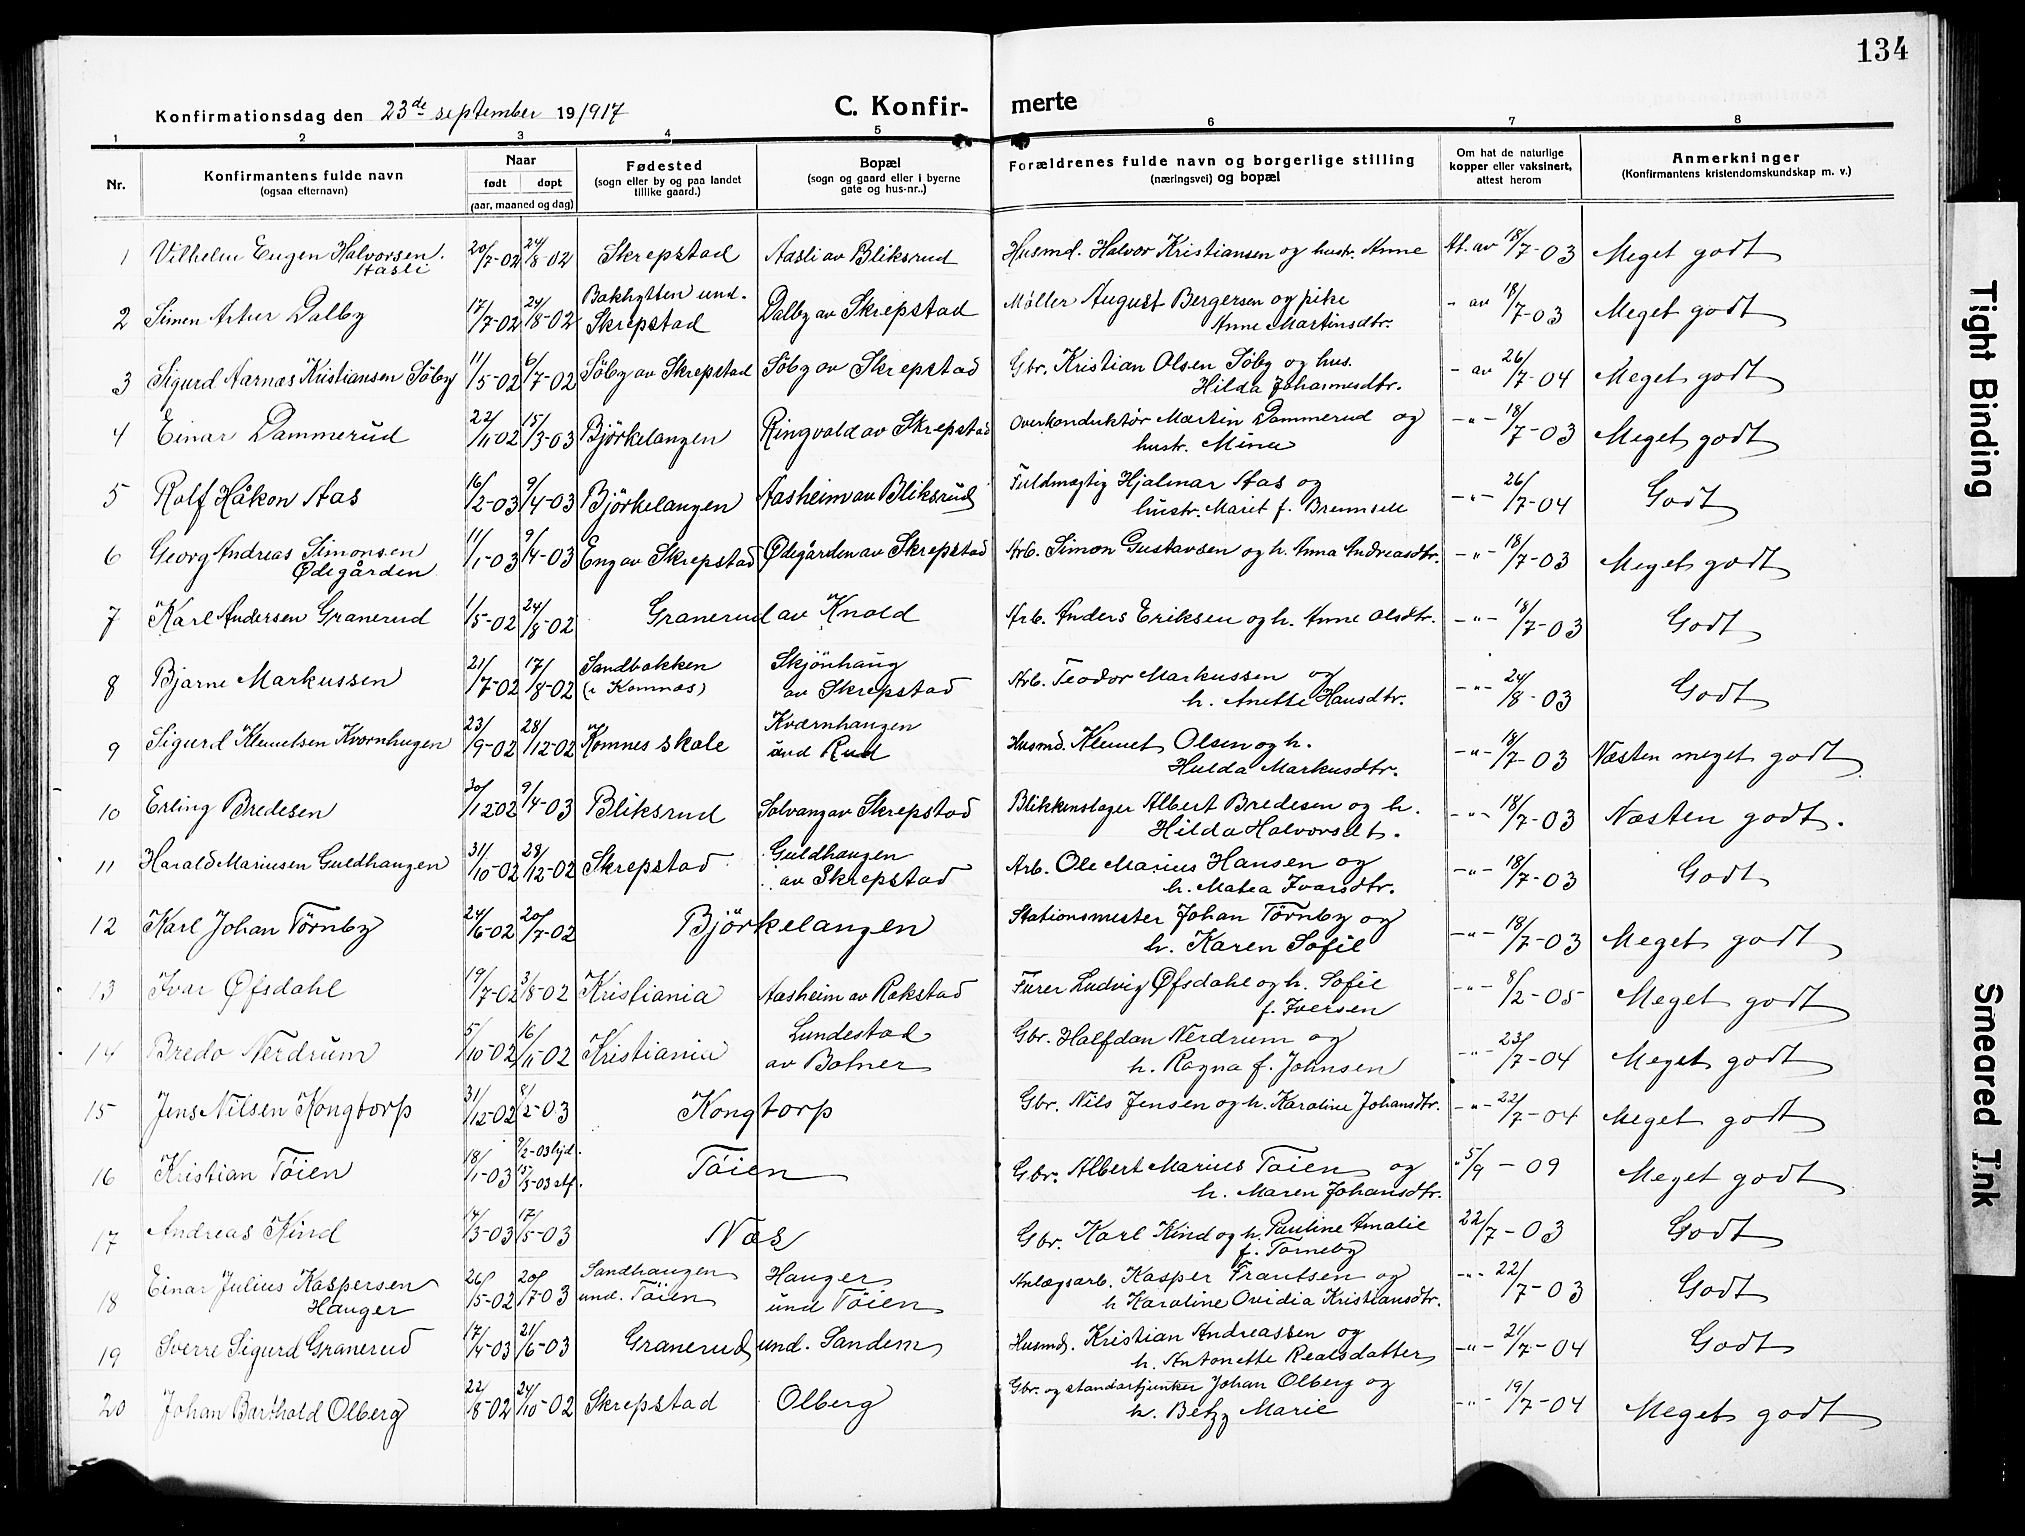 134
Konfirmationsdag den 23de september 19/917
C. Konfir-merte
1 2 3 4 5 6 7 8
Nr.
Konfirmantens fulde navn
(ogsaa efternavn)
Naar
født døpt
(aar, maaned og dag)
Fødested
(sogn eller by og paa landet
tillike gaard.)
Bopæl
(sogn og gaard eller i byerne
gate og hus-nr..)
Forældrenes fulde navn og borgerlige stilling
(næringsvei) og bopæl
Om hat de naturlige
kopper eller vaksinert,
attest herom
Anmerkninger
(Konfirmantens kristendomskundskap m. v.)
1 Vilhelm Eugen Halvorsen 20/7-02 24/8-02 Skrepstad Aasli av Bliksrud Husmd. Halvor Kristiansen og hustr. Anne At. av 18/7-03 Meget godt
Aasli
2 Simen Artur Dalby 17/7-02 24/8-02 Bakhytten und. Skrepstad Dalby av Skrepstad Møller August Bergersen og pike - av 18/7-03 Meget godt
Anne Martinsdtr.
3 Sigurd Aarnæs Kristiansen Söby 11/5-02 6/7-02 Söby av Skrepstad Söby av Skrepstad Gbr. Kristian Olsen Söby og hus. - av 26/7-04 Meget godt
Hilda Johannesdtr.
4 Einar Dammerud 22/11-02 15/3-03 Björkelangen Ringvold av Skrepstad Overkonduktør Martin Dammerud og -"- 18/7-03 Meget godt
hustr. Mina
5 Rolf Håkon Aas 16/2-03 9/4-03 Björkelangen Aasheim av Bliksrud Fuldmægtig Hjalmar Aas og -"- 26/7-04 Godt
hustr. Marit f.
6 Georg Andreas Simonsen 11/1-03 9/4-03 Eng av Skrepstad Ødegården av Skrepstad Arb. Simon Gustavsen og h. Anna Andreasdtr. -"- 18/7-03 Meget godt
Ødegården
7 Karl Andersen Granerud 1/5-02 24/8-02 Granerud av Knold Arb. Anders Eriksen og h. Anne Olsdtr. -"- 18/7-03 Godt
8 Bjarne Markussen 21/7-02 17/8-02 Sandbakken (i Komnæs) Skjönhaug av Skrepstad Arb. Teodor Markussen og -"- 24/8-03 Godt
h. Anette Hansdtr.
9 Sigurd Klemetsen Kvernhugen 23/9-02 28/12-02 Komnes skole Kværnhaugen und Rud Husmd. Klemet Olsen og h. -"- 18/7-03 Næsten meget godt
Hulda Markusdtr.
10 Erling Bredesen 30/12-02 9/4-03 Bliksrud Solvang av Skrepstad Blikkenslager Albert Bredesen og h. -"- 18/7-03 Næsten godt.
Hilda Halvorsdt.
11 Harald Mariusen Guldhaugen 31/10-02 28/12-02 Skrepstad Guldhaugen av Skrepstad Arb. Ole Marius Hansen og -"- 18/7-03 Godt
h. Matea Ivarsdtr.
12 Karl Johan Törnby 24/6-02 20/7-02 Björkelangen Stationsmester Johan Törnby og -"- 18/7-03 Meget godt
h. Karen Sofie
13 Ivar Øfsdahl 19/7-02 3/8-02 Kristiania Aasheim av Rakstad Furer Ludvig Øfsdahl og h. Sofie -"- 8/2-05 Meget godt
f. Iversen
14 Bredo Nerdrum 5/10-02 16/11-02 Kristiania Lundestad av Botner Gbr. Halfdan Nerdrum og -"- 23/7-04 Meget godt
h. Ragna f. Johnsen
15 Jens Nilsen Kongtorp 31/12-02 8/2-03 Kongtorp Gbr. Nils Jensen og h. Karoline Johansdtr. -"- 22/7-04 Meget godt
16 Kristian Töien 18/1-03 8/2-03 hjd. 15/3-03 stf. Töien Gbr. Albert Marius Töien og " 5/9-09 Meget godt
h. Maren Johansdtr.
17 Andreas Kind 14/3-03 17/5-03 Næs Gbr. Karl Kind og h. Pauline Amalie 22/7-03 Godt
f. Torneby
18 Einar Julius Kaspersen 26/5-02 20/7-03 Sandhaugen und. Töien Hauger und Töien Anlægsarb. Kasper Frantsen og -"- 22/7-03 Godt
Hauger h Karoline Ovidia Kristiansdtr.
19 Sverre Sigurd Granerud 17/4-03 21/6-03 Granerud und. Sandem Husmd. Kristian Andreassen og -"- 21/7-04 Godt
h. Antonette Realsdatter
20 Johan Barthold Olberg 22/8-02 24/10-02 Skrepstad Olberg Gbr. og standartjunker Johan Olberg og -"- 19/7-04 Meget godt
h. Betzy Marie
Tight Binding
Smeared Ink